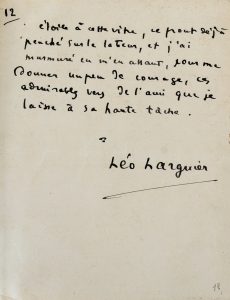 12
éloire à cette vitre, ce front déjà
penché sur le labeur, et j'ai
murmuré en m'en allant, pour me
donner un peu de courage, ces
admirables vers de l'ami que je
laisse à sa haute tâche.
Léo Larguier